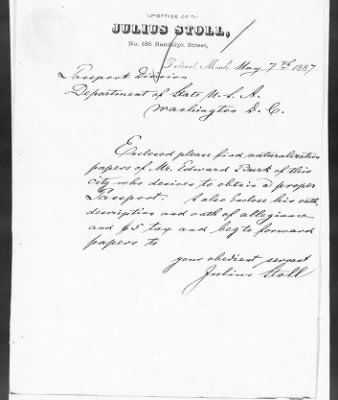 OFFICE OF
JULIUS STOLL,
No. 186 Randolph Street,
Detroit, Mich. May 7th 1887
Passport Division
Department of State U. S. A.
Washington D. C.
Enclosed please find naturalization
papers of Mr. Edward Burk of this
city who desires to obtain a proper
Passport. I also enclose his oath
description and oath of allegiance
and $5 tax and beg to forward
papers to
your obedient servant
Julius Stoll